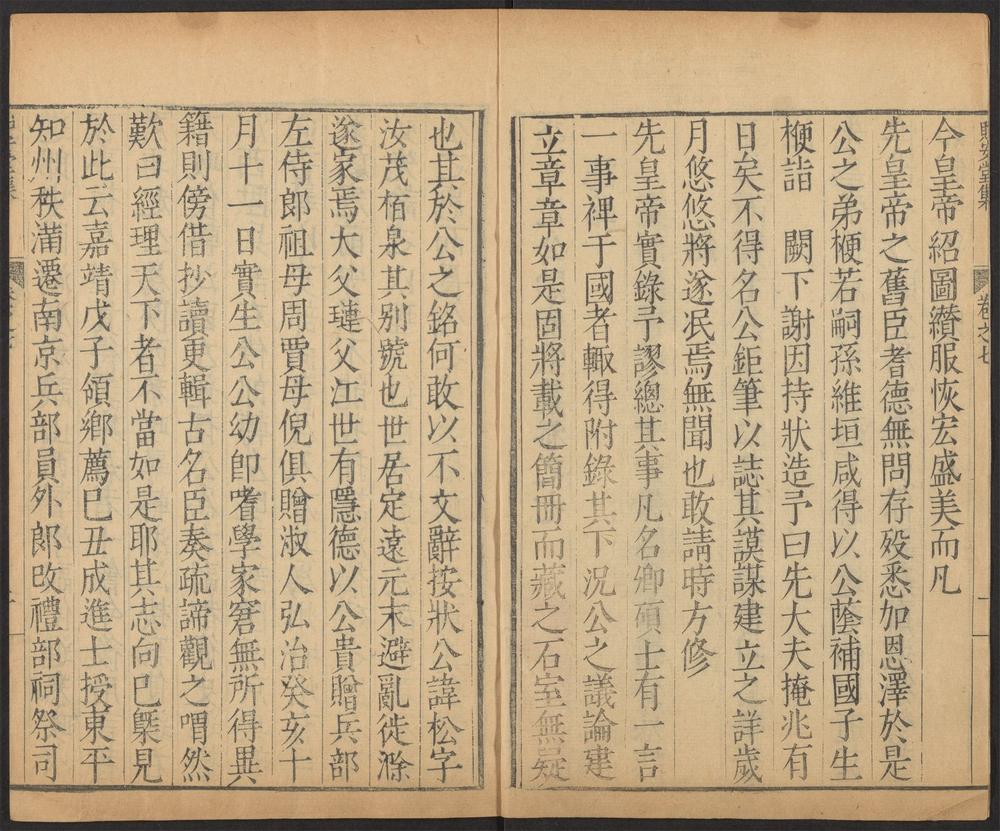 賜安堂集 卷之七 一
今皇帝紹圖纘服恢宏盛美而凡
先皇帝之舊臣耆德無問存歿悉加恩澤於是
公之弟梗若嗣孫維垣咸得以公蔭補國子生
梗詣 闕下謝因持狀造予曰先大夫掩兆有
日矣不得名公鉅筆以誌其謨謀建立之詳歲
月悠悠將遂泯焉無聞也敢請時方修
先皇帝實錄予謬總其事凡名卿碩士有一言
一事裨于國者輒得附錄其下況公之議論建
立章章如是固將載之簡冊而藏之石室無疑
也其於公之銘何敢以不文辭按狀公諱松字
汝茂栢泉其別號也世居定遠元末避亂徙滁
遂家焉大父璉父江世有隱德以公貴贈兵部
左侍郎祖母周賈母倪俱贈淑人弘治癸亥十
月十一日實生公公幼即嗜學家窘無所得異
籍則傍借抄讀更輯古名臣奏疏諦觀之喟然
歎曰經理天下者不當如是耶其志向已槩見
於此云嘉靖戊子領鄉薦己丑成進士授東平
知州秩滿遷南京兵部員外郎改禮部祠祭司